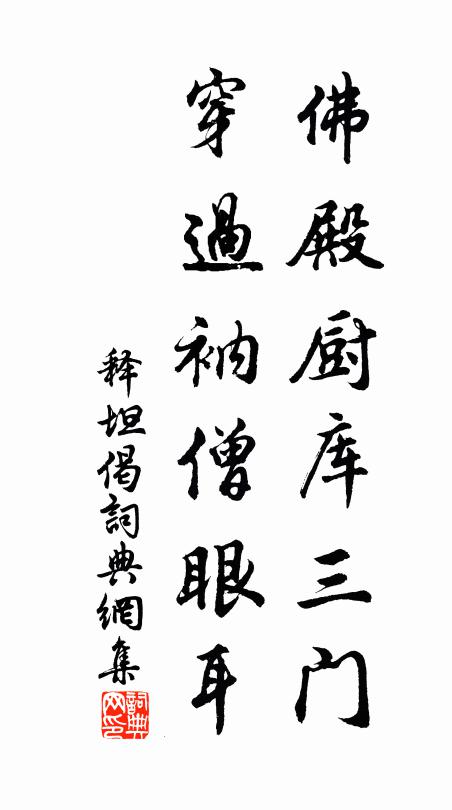 佛殿厨库三门
穿過衲僧眼耳
释坦偈詞典網集
詞典网印